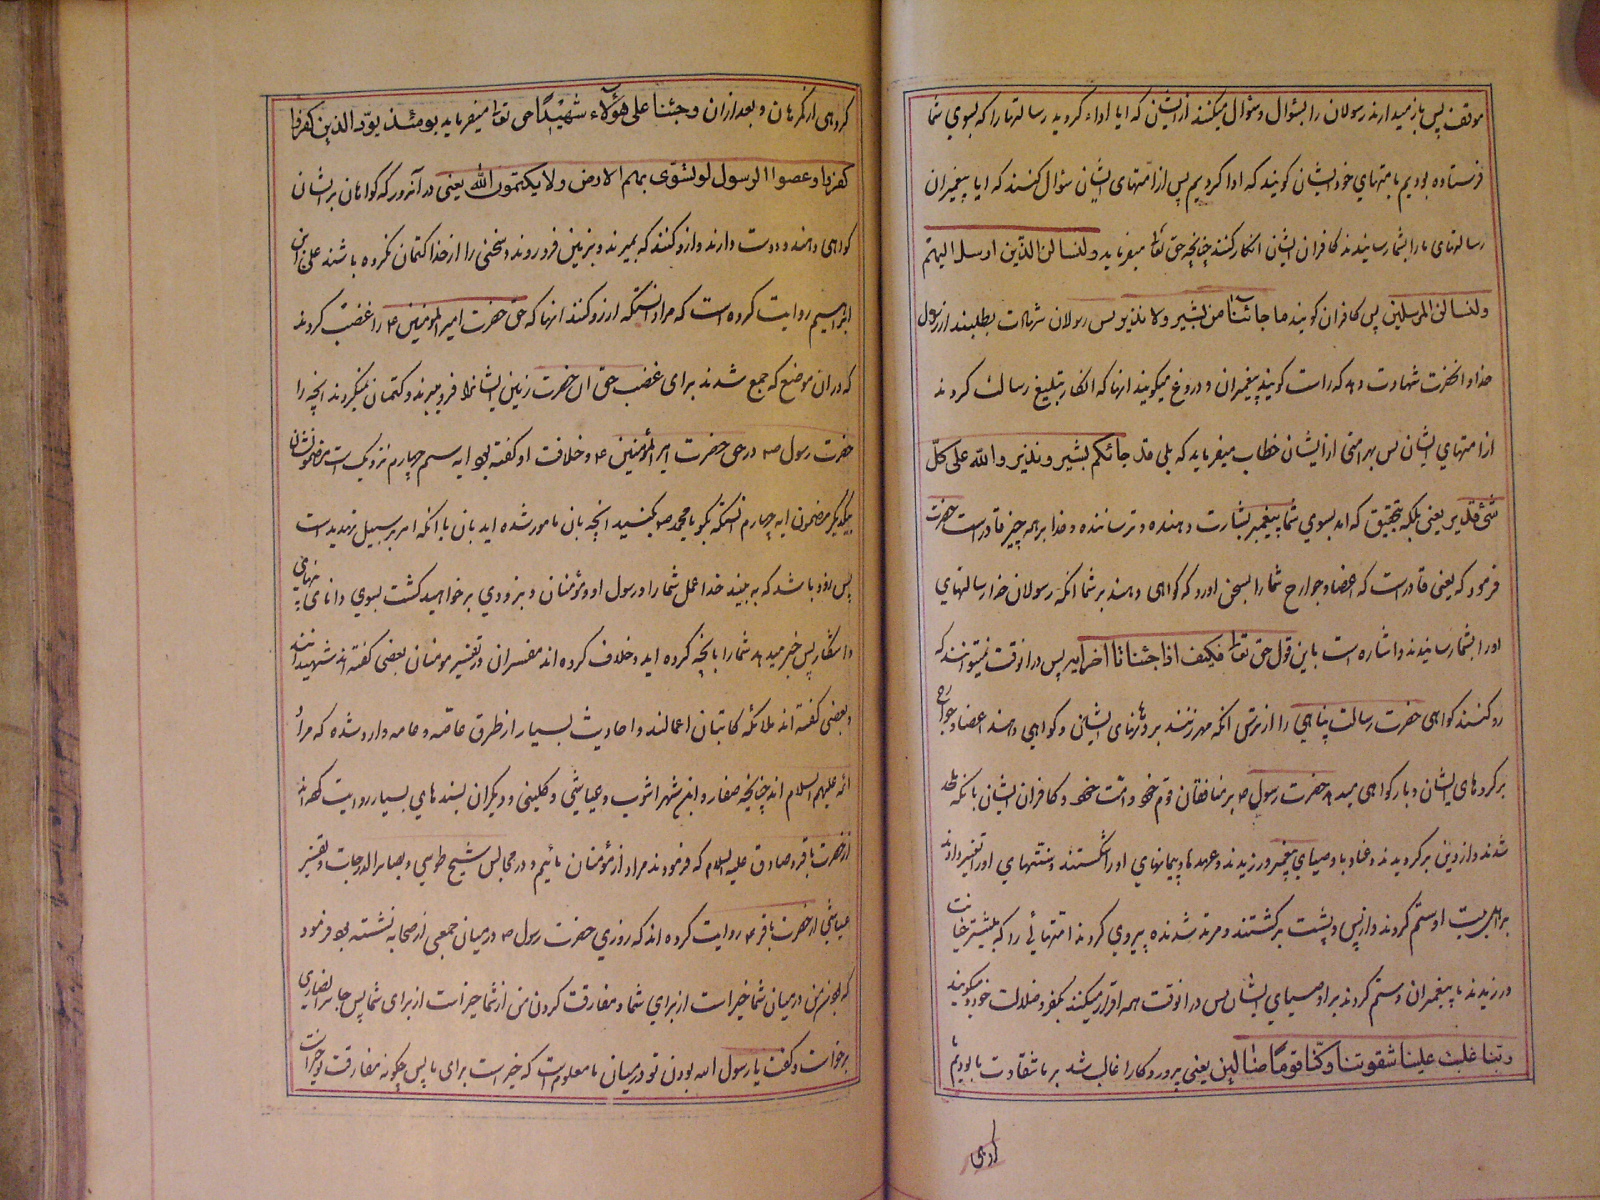 موقف پس باز میدارند رسولان را بسؤال و سؤال میکنند از ایشان که ایا اداء کردید رسالتها را که بسوي شما
فرستاده بودیم بامتهاي خود ایشان کویند که ادا کردیم پس از امتهاي ایشان سؤال کنند که ایا پیغمبران
رسالتهای ما را بشما رسانیدند کافران ایشان انکار کنند چنانچه حق تعالی میفرماید ولنسالن الذین ارسل الیهم
ولنسالن المرسلین پس کافران کویند ما جائنا من بشیر ولا نذیر پس رسولان شهادت بطلبند از رسول
خدا و انحضرت شهادت دهد که راست کویند پیغمبران و دروغ میکویند انها که انکار تبلیغ رسالت کردند
از امتهاي ایشان پس بهر امتی از ایشان خطاب میفرماید که بلی قد جائکم بشیر ونذیر والله علی کلّ
شیء قدیر یعنی بلکه بتحقیق که امد بسوي شما پیغمبر بشارت دهنده و ترساننده و خدا بر همه چیز قادر است حضرت
فرمود که یعنی قادر است که اعضا و جوارح شما را بسخن اورد که کواهی دهند بر شما انکه رسولان خدا رسالتهاي
او را بشما رسانیدند و اشاره است باین قول حق تعالی فکیف اذا جئنا تا اخر ایه پس در انوقت نمیتوانند که
رد کنند کواهی حضرت رسالت پناهی را از ترس انکه مهر زنند بر دهنهای ایشان و کواهی دهند اعضا و جوارح
بر کردهای ایشان و بار کواهی میدهد حضرت رسول ص بر منافقان قوم خود و امت خود و کافران ایشان بانکه ملحد
شدند و از دین بر کردیدند و عناد با وصیاي پیغمبر ورزیدند و عهدها و پیمانهاي او را شکستند و سنتهاي او را تغییر دادند
بر اهل بیت او ستم کردند و از پس و پشت برکشتند و مرتد شدند و پیروي کردند امتهائي را که پیشتر خیانت
ورزیدند با پیغمبران و ستم کردند بر اوصیاي ایشان پس در انوقت همه اقرار میکنند بکفر و ضلالت خود و میکویند
ربّنا غلبت علینا شقوتنا وکنّا قومًا ضالّین یعنی پرورد کارا غالب شد بر ما شقاوت ما و بودیم ما
کروهی از کمرهان و بعد از ان وجئنا علی هؤلاء شهیدًا حق تعالی میفرماید یومئذ یودّ الذین کفروا
کفروا وعصوا الرسول لو تسوّی بهم الارض ولا یکتمون الله یعنی در آنروز که کواهان بر ایشان
کواهی دهند دوست دارند و ارزو کنند که بمیرند و بزمین فرو روند و سخنی را از خدا کتمان نکرده باشند علی بن
ابراهیم روایت کرده است که مراد انستکه ارزو کنند انها که حق حضرت امیر المومنین ع را غصب کردند
که در ان موضع که جمع شدند برای غصب حق ان حضرت زمین ایشانرا فرو میبرد و کتمان نمیکردند انچه را
حضرت رسول ص در حق حضرت امیر المؤمنین ع و خلافت او کفته بود ایه سیم چهارم نزدیکست مضمونشان
بیکدیکر مضمون ایه چهارم انستکه بکو یا محمد ص بکنید انچه بان مامور شده اید بان یا انکه امر بر سبیل تهدید است
پس زود باشد که به بیند خدا عمل شما را و رسول او و مؤمنان و بزودي بر خواهید کشت بسوي داناي نهان
و اشکار پس خبر میدهد شما را بانچه کرده اید و خلاف کرده اند مفسران در تفسیر مومنان بعضی کفته اند شهیدانند
و بعضی کفته اند ملائکه کاتبان اعمالند و احادیث بسیار از طرق خاصه و عامه وارد شده که مراد
ائمه علیهم السلام اند چنانچه صفار و ابن شهراشوب و عیاشی و کلینی و دیکران بسندهاي بسیار روایت کرده اند
از حضرت باقر و صادق علیه السلام که فرمودند مراد از مؤمنان مائیم و در مجالس شیخ طوسي و بصایر الدرجات و تفسیر
عیاشي از حضرت باقر ع روایت کرده اند که روزي حضرت رسول ص در میان جمعی از صحابه نشسته بود فرمود
که بودن من در میان شما خیر است از براي شما و مفارقت کردن من از شما خیر است از برای شما پس جابر انصاری
برخواست و کفت یا رسول الله بودن تو در میان ما معلوم است که خیر است برای ما پس چکونه مفارقت تو خیر است